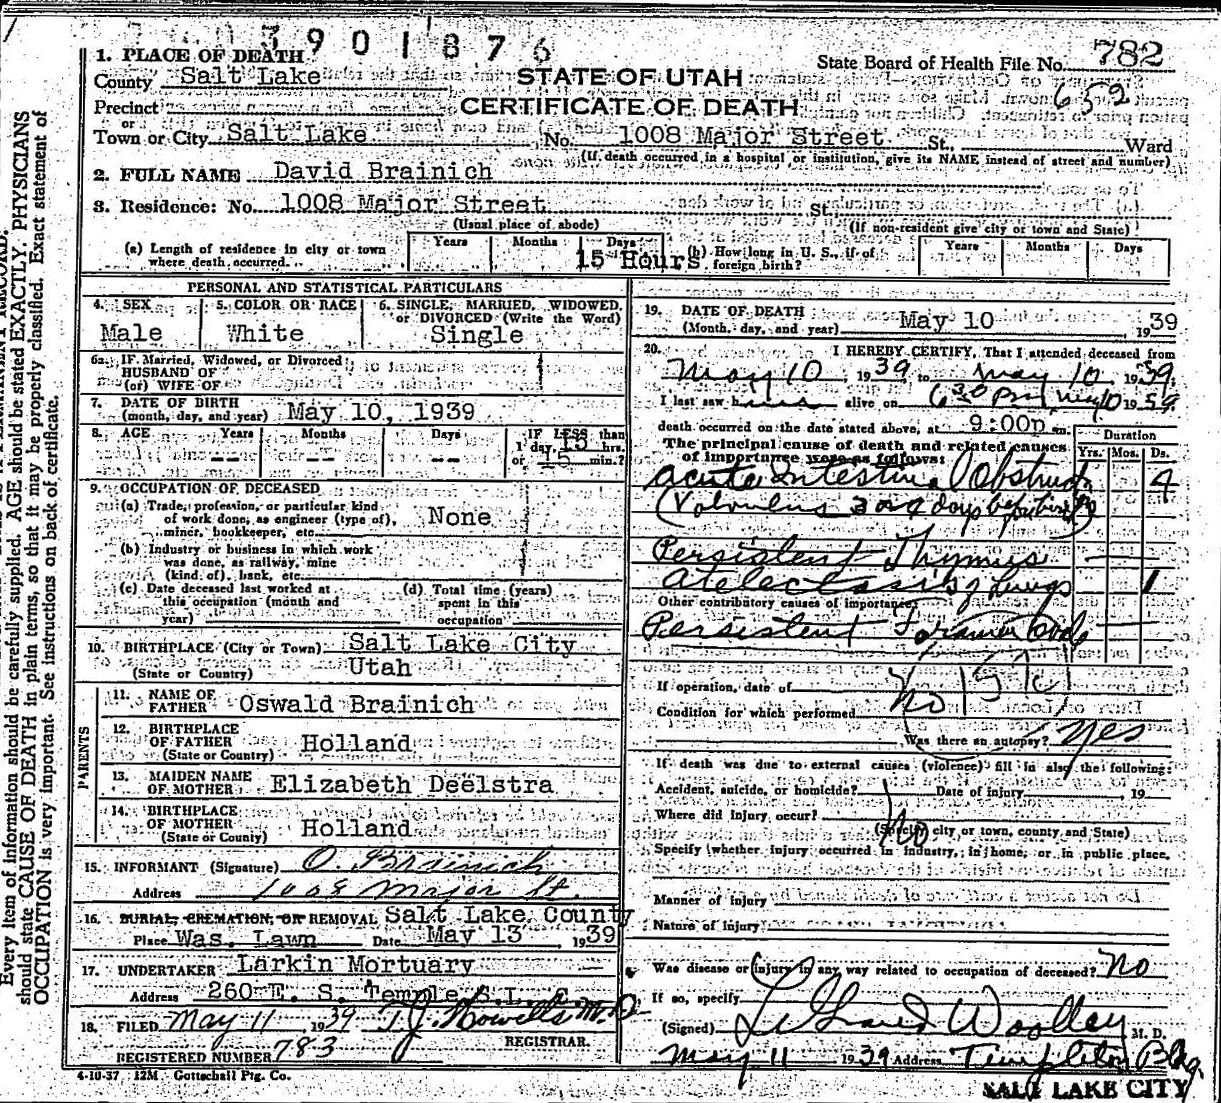 3901876
1. PLACE OF DEATH
State Board of Health File No. 782
County Salt Lake
STATE OF UTAH
652
Precinct
CERTIFICATE OF DEATH
or
Town or City Salt Lake No. 1008 Major Street St., Ward
(If death occurred in a hospital or institution, give its NAME instead of street and number)
2. FULL NAME David Brainich
3. Residence: No. 1008 Major Street St.
(Usual place of abode) (If non-resident give city or town and State)
(a) Length of residence in city or town where death occurred. Years Months Days 15 Hours
(b) How long in U. S., if of foreign birth? Years Months Days
PERSONAL AND STATISTICAL PARTICULARS
4. SEX Male
5. COLOR OR RACE White
6. SINGLE, MARRIED, WIDOWED, or DIVORCED (Write the Word) Single
6a. IF Married, Widowed, or Divorced
HUSBAND OF
(or) WIFE OF
7. DATE OF BIRTH
(month, day, and year) May 10, 1939
8. AGE Years -- Months -- Days -- IF LESS than 1 day, 15 hrs. or 15 min.?
9. OCCUPATION OF DECEASED
(a) Trade, profession, or particular kind of work done, as engineer (type of), miner, bookkeeper, etc. None
(b) Industry or business in which work was done, as railway, mine (kind of), bank, etc.
(c) Date deceased last worked at this occupation (month and year)
(d) Total time (years) spent in this occupation
10. BIRTHPLACE (City or Town) Salt Lake City
(State or Country) Utah
PARENTS
11. NAME OF FATHER Oswald Brainich
12. BIRTHPLACE OF FATHER (State or Country) Holland
13. MAIDEN NAME OF MOTHER Elizabeth Deelstra
14. BIRTHPLACE OF MOTHER (State or Country) Holland
15. INFORMANT (Signature) O. Brainich
Address 1008 Major St.
16. BURIAL, CREMATION, OR REMOVAL Salt Lake County
Place Was. Lawn Date May 13 1939
17. UNDERTAKER Larkin Mortuary
Address 260 E. S. Temple S.L.C.
18. FILED May 11 1939 T J Howells M.D.
REGISTRAR.
REGISTERED NUMBER 783
4-10-37 12M Gottschall Ptg. Co.
19. DATE OF DEATH
(Month, day, and year) May 10 1939
20. I HEREBY CERTIFY, That I attended deceased from
May 10 1939, to May 10 1939.
I last saw him alive on 6:30 PM May 10 1939,
death occurred on the date stated above, at 9:00p m.
The principal cause of death and related causes of importance were as follows:
Duration
Yrs. Mos. Ds.
Acute Intestinal Obstruct 4
(Volvulus 3 or 4 days before birth)
Persistent Thymus
Atelectasis of Lungs 1
Other contributory causes of importance
Persistent Foramen Ovale
If operation, date of No
Condition for which performed
Was there an autopsy? Yes
If death was due to external causes (violence) fill in also the following:
Accident, suicide, or homicide? Date of injury 19
Where did injury occur? No
(Specify city or town, county and State)
Specify whether injury occurred in industry, in home, or in public place.
Manner of injury
Nature of injury
Was disease or injury in any way related to occupation of deceased? No
If so, specify
(Signed) Woolley M. D.
May 11 1939 Address Templeton Bldg.
SALT LAKE CITY
Every item of information should be carefully supplied. AGE should be stated EXACTLY. PHYSICIANS
should state CAUSE OF DEATH in plain terms, so that it may be properly classified. Exact statement of
OCCUPATION is very important. See instructions on back of certificate.